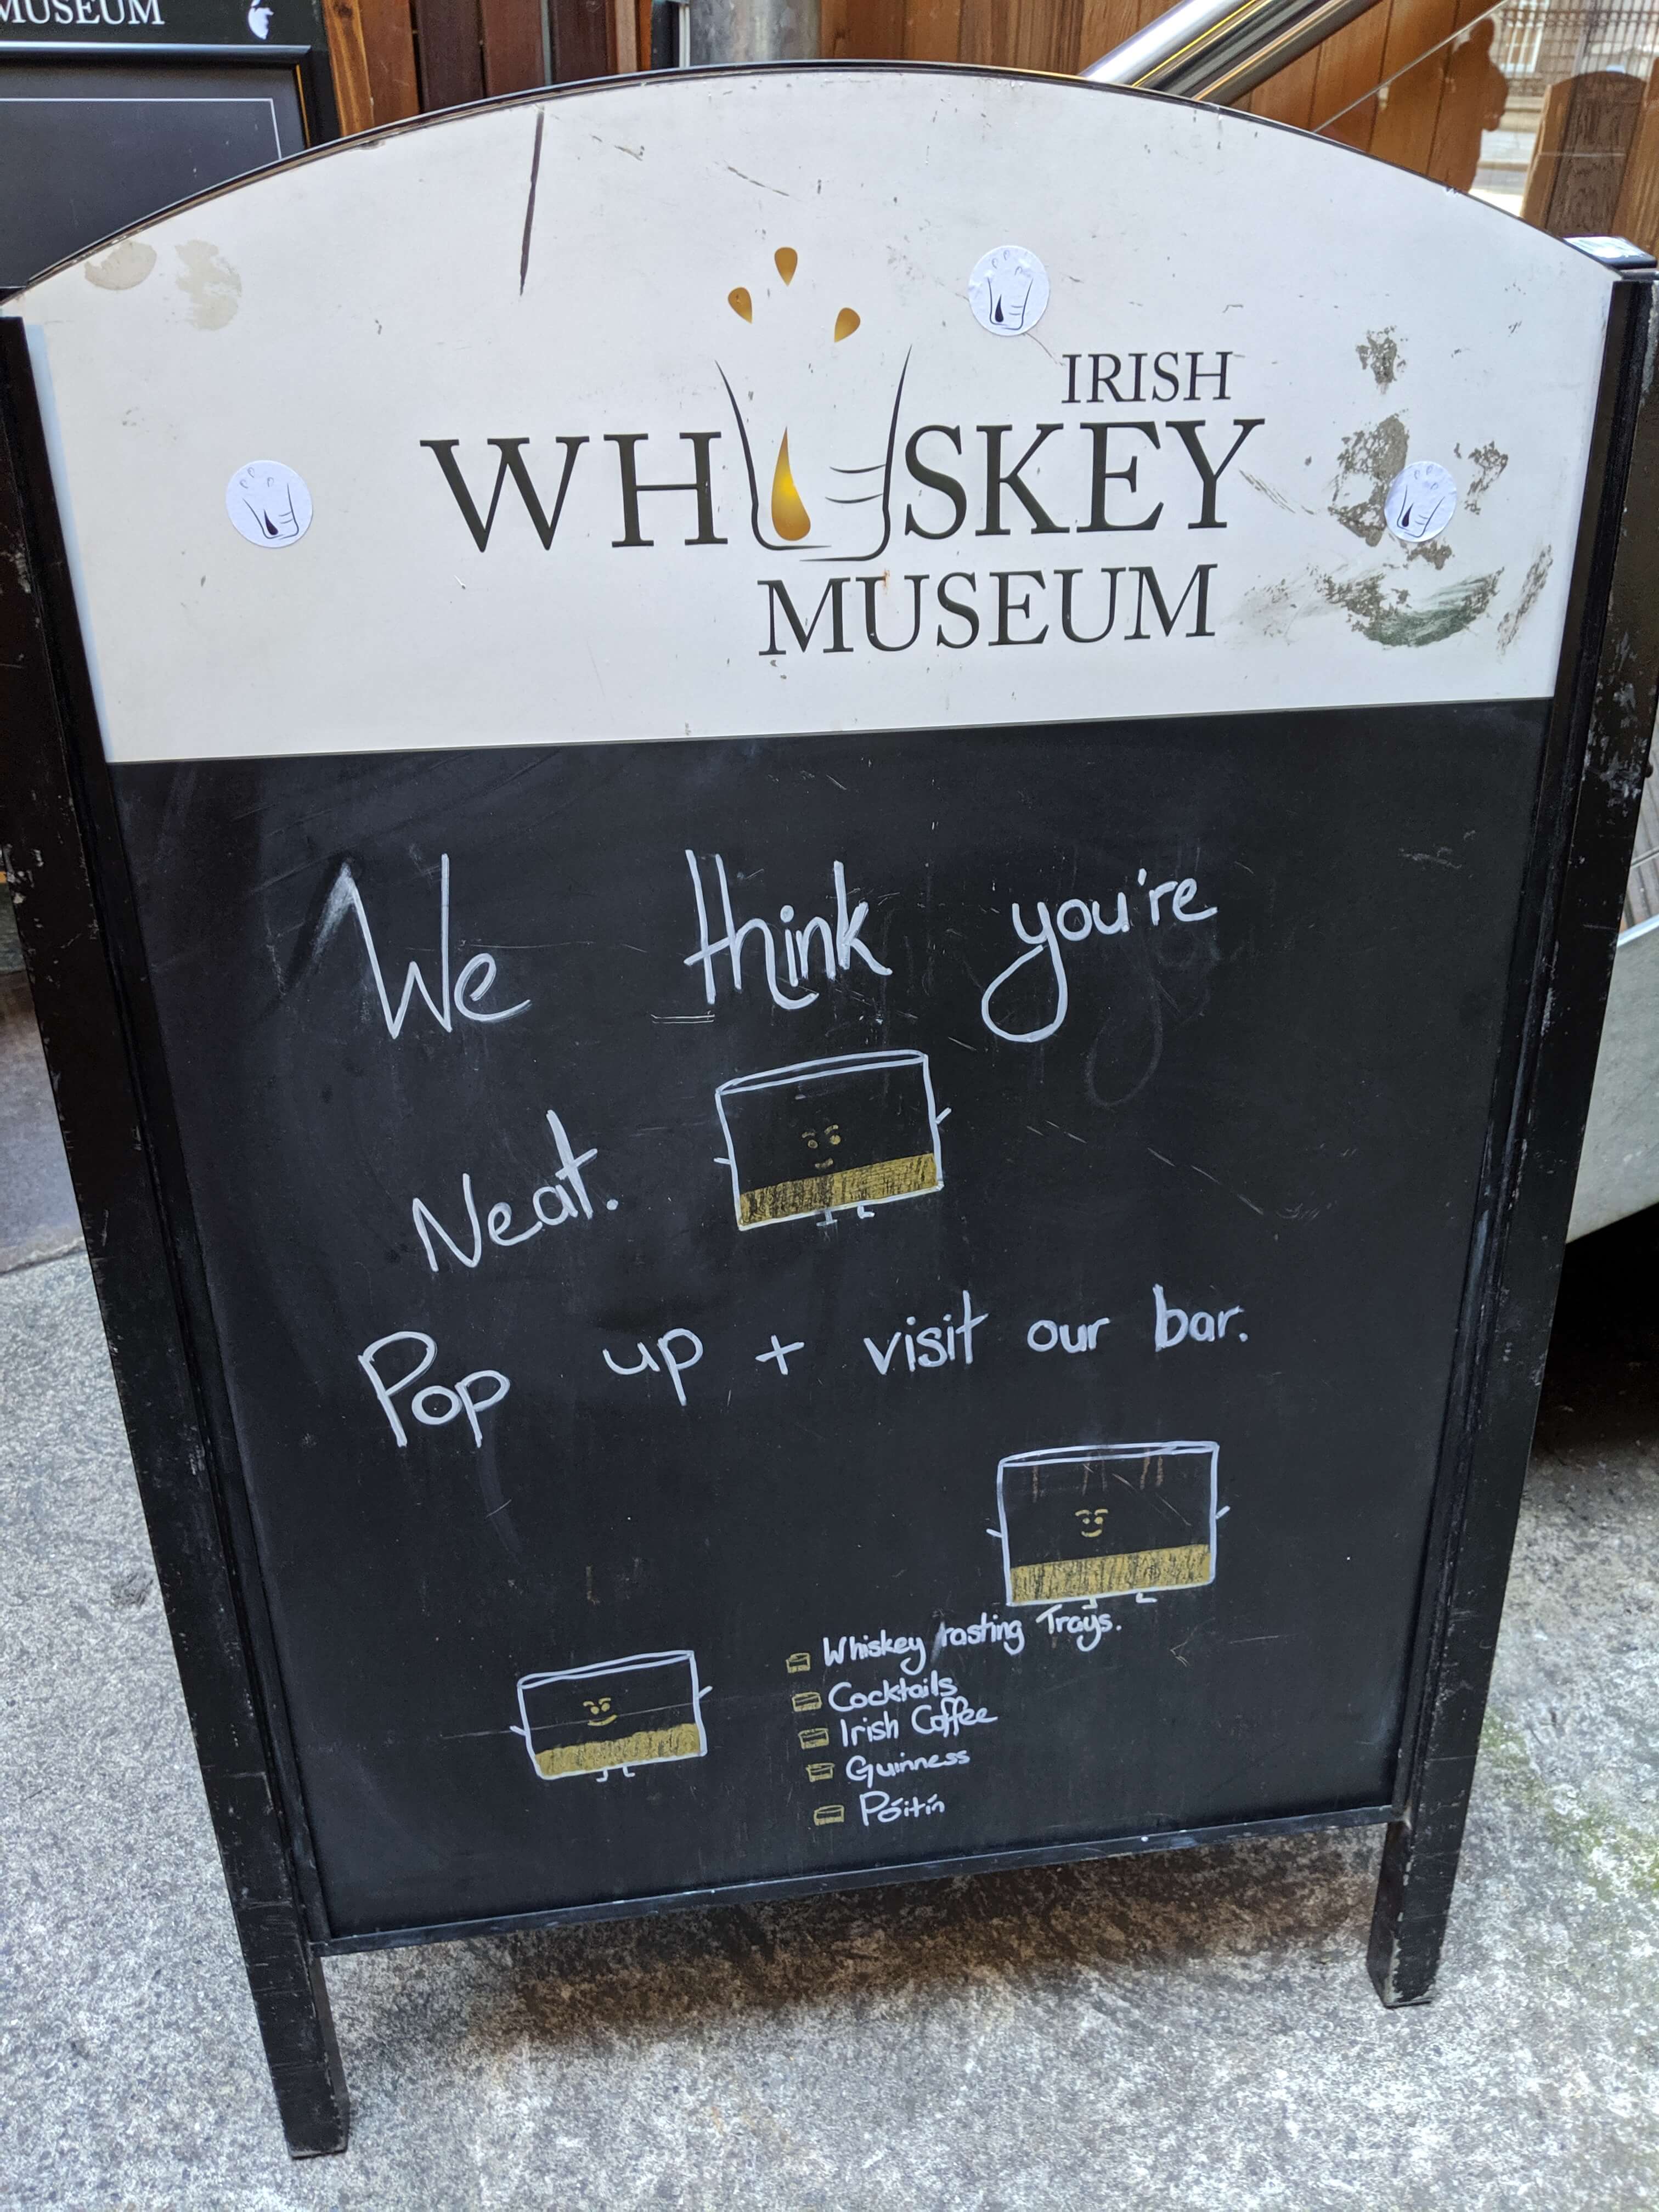 MUSEUM
IRISH
WHISKEY
MUSEUM
We think you're
Neat.
Pop up + visit our bar.
Whiskey Tasting Trays.
Cocktails
Irish Coffee
Guinness
Póitín